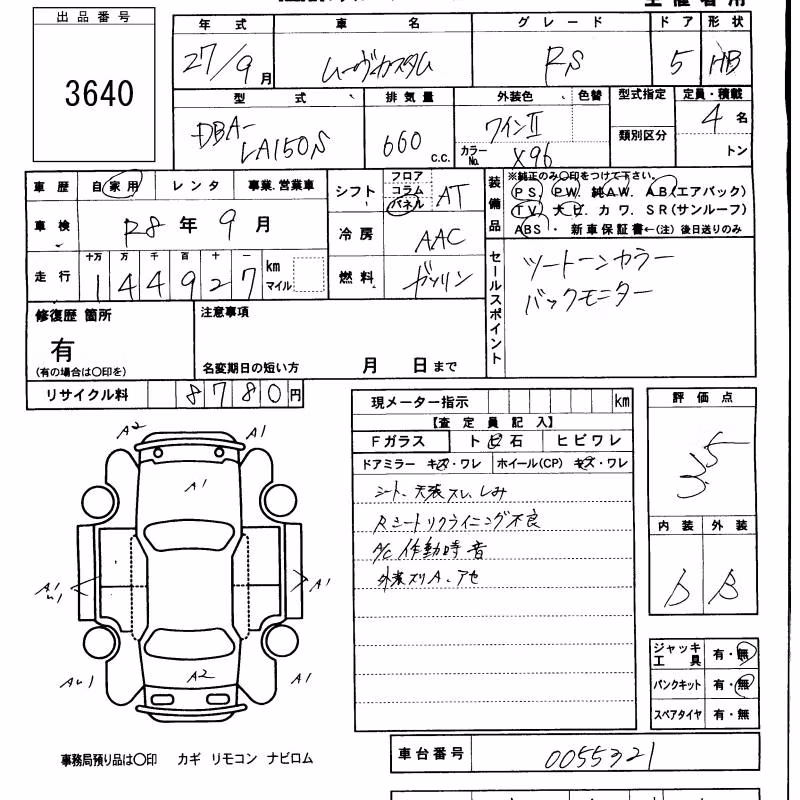 出品番号
3640
年式 車名 グレード ドア 形状
27/9月 ムーヴカスタム RS 5 HB
型式 排気量 外装色 色替 型式指定 定員・積載
DBA-LA150S 660 c.c. ワインⅡ 類別区分 4名
カラーNo. X96 トン
車歴 自家用 レンタ 事業.営業車
車検 R8年9月
走行 十万 万 千 百 十 一
144927 km マイル
シフト フロア コラム パネル AT
冷房 AAC
燃料 ガソリン
装備品 ※純正のみ〇印をつけて下さい。
PS. PW. 純AW. AB.(エアバック)
TV. ナビ. カワ. SR(サンルーフ)
ABS・ 新車保証書←(注) 後日送りのみ
セールスポイント
ツートーンカラー
バックモニター
修復歴 箇所
有
(有の場合は〇印を)
注意事項
名変期日の短い方 月 日まで
リサイクル料 8780円
現メーター指示 km
【査定員記入】
Fガラス ト ビ 石 ヒビワレ
ドアミラー キズ・ワレ ホイール(CP) キズ・ワレ
シート、天張スレ、しみ
Rシートリクライニング不良
A/C 作動時音
外装スリA、アセ
評価点
3.5
内装 外装
B B
ジャッキ工具 有・無
パンクキット 有・無
スペアタイヤ 有・無
A2 A1
A1
A1
A1
A2
A1
事務局預り品は〇印 カギ リモコン ナビロム
車台番号 0055321